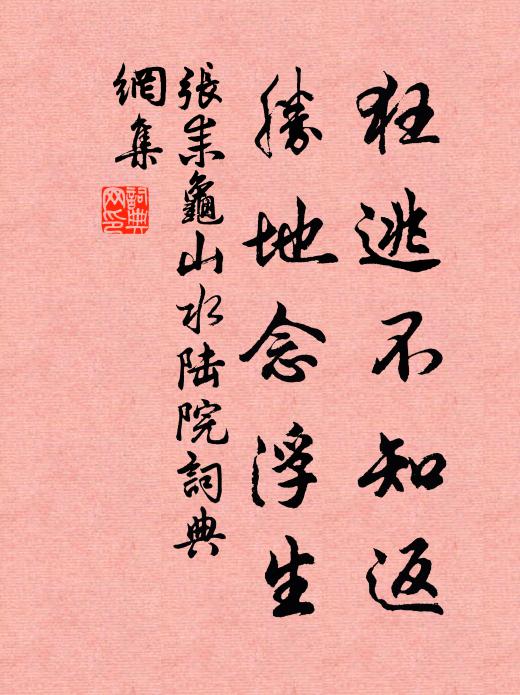 狂逃不知返
勝地念浮生
張耒龜山水陆院詞典
網集
詞典網印